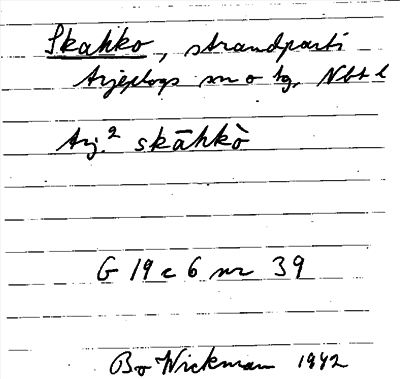 Skahko, strandparti
Arjeplogs sn o tg, Nbt l
Arj.² skāhkò
G 19 c 6 nr 39
Bo Wickman 1942